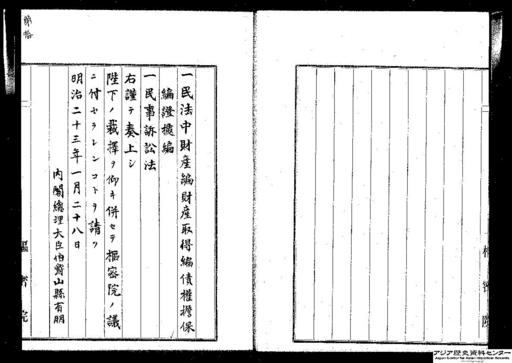 一民法中財産編財産取得編債權擔保
編證據編
一民事訴訟法
右謹テ奏上シ
陛下ノ裁擇ヲ仰キ併セテ樞密院ノ議
ニ付セラレンコトヲ請フ
明治二十三年一月二十八日
内閣總理大臣伯爵山縣有朋
樞密院
樞密院
アジア歴史資料センター
Japan Center for Asian Historical Records